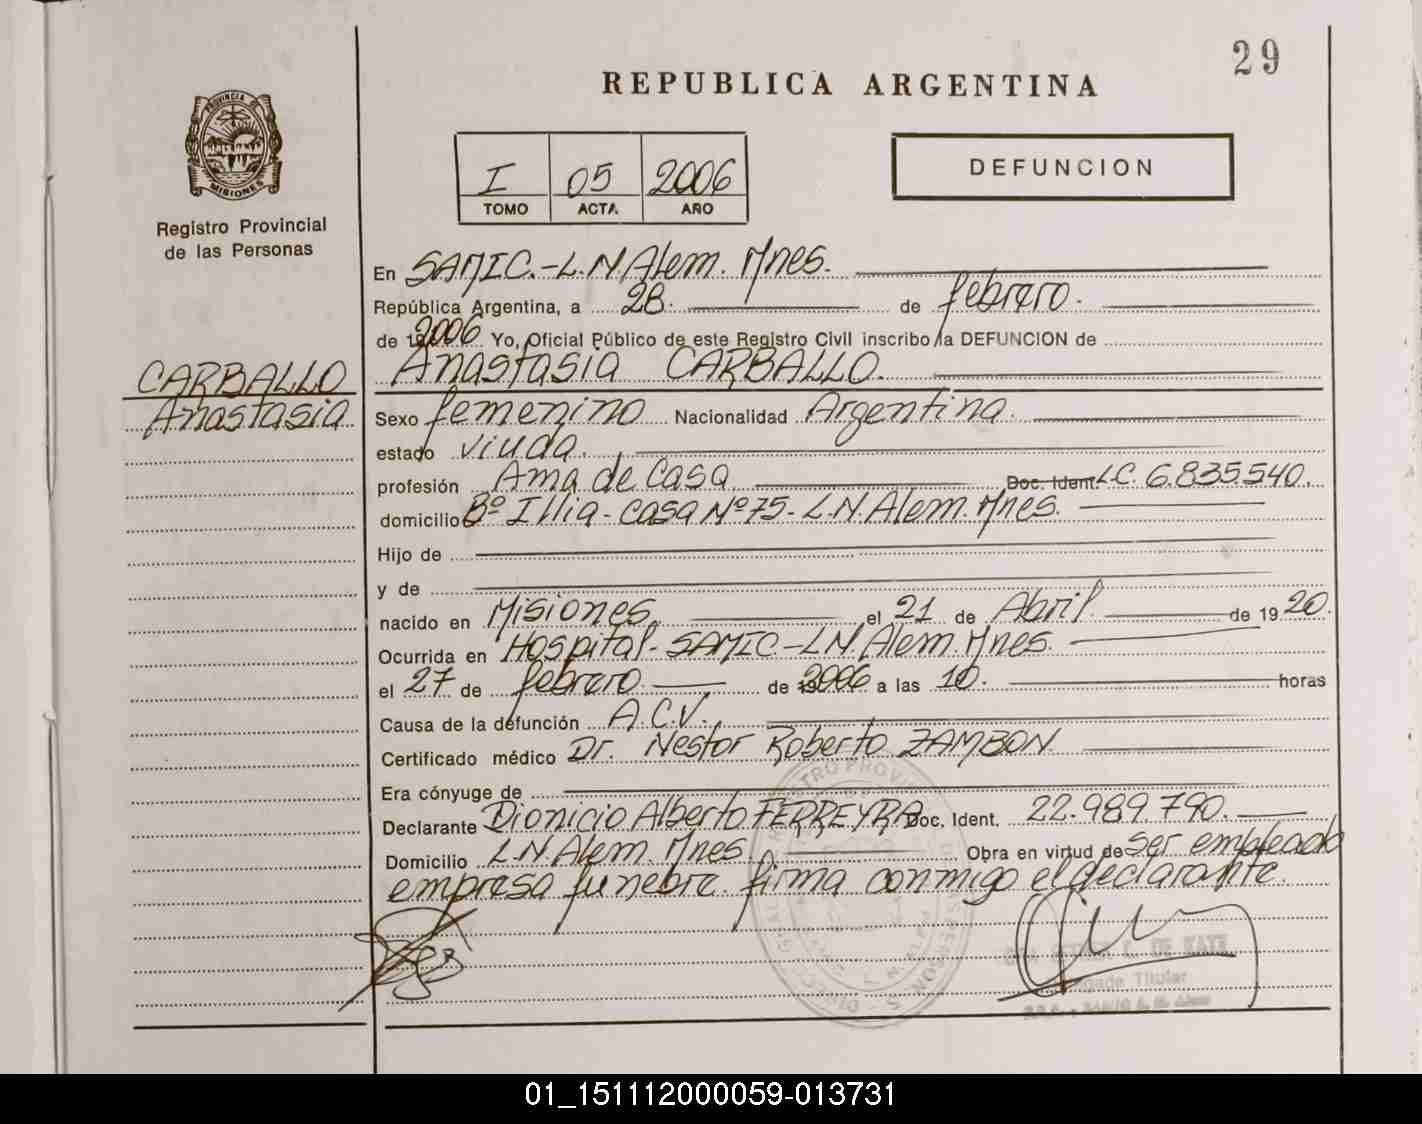 29
REPUBLICA ARGENTINA
PROVINCIA DE
MISIONES
Registro Provincial
de las Personas
I 05 2006
TOMO ACTA AÑO
DEFUNCION
En SAMIC.-L.N.Alem. Mnes.
República Argentina, a 28. de febrero.
de 19 2006 Yo, Oficial Público de este Registro Civil inscribo la DEFUNCION de
Anastasia CARBALLO.
CARBALLO
Anastasia
Sexo femenino Nacionalidad Argentina.
estado viuda.
profesión Ama de Casa Doc. Ident L.C. 6.835.540.
domicilio Bº Illia - casa Nº 75 - L.N. Alem. Mnes.
Hijo de
y de
nacido en Misiones. el 21 de Abril. de 19 20.
Ocurrida en Hospital - SAMIC - L.N. Alem. Mnes.
el 27 de febrero. de 2006 a las 10. horas
Causa de la defunción A.C.V.
Certificado médico Dr. Nestor Roberto ZAMBON.
Era cónyuge de
Declarante Dionicio Alberto FERREYRA Doc. Ident. 22.989.790.
Domicilio L.N. Alem. Mnes. Obra en virtud de ser empleado
empresa funebre. firma conmigo el declarante.
DE KAYE
Titular
01_151112000059-013731